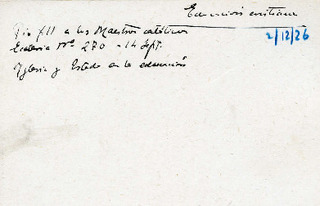 Educación cristiana
Pio XII a los Maestros católicos
2/12/26
Ecclesia Nº 270 - 14 Sept.
Iglesia y Estado en la educación